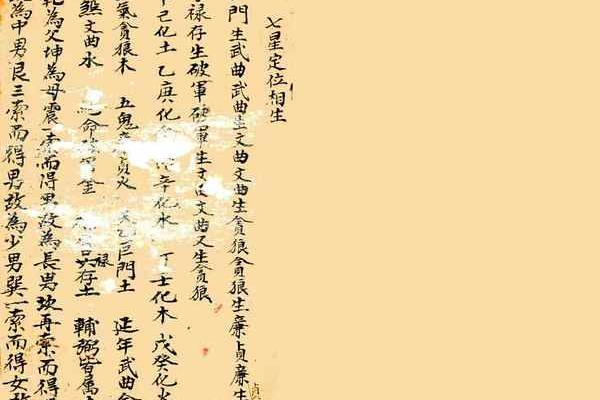 七星定位相生
門生武曲武曲生文曲文曲生貪狼貪狼生廉貞廉生
祿存生破軍破軍生文曲文曲又生貪狼
己化土乙庚化辛化水丁壬化木戊癸化火
氣貪狼木五鬼廉貞火天乙巨門土延年武曲金
煞文曲水絕命破軍金祿存土輔弼皆屬
乾為父坤為母震一索而得男故為長男坎再索而得
為中男艮三索而得男故為少男巽一索而得女故
貞